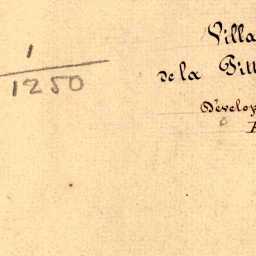 1
1250
Villa
de la Vill
Develop